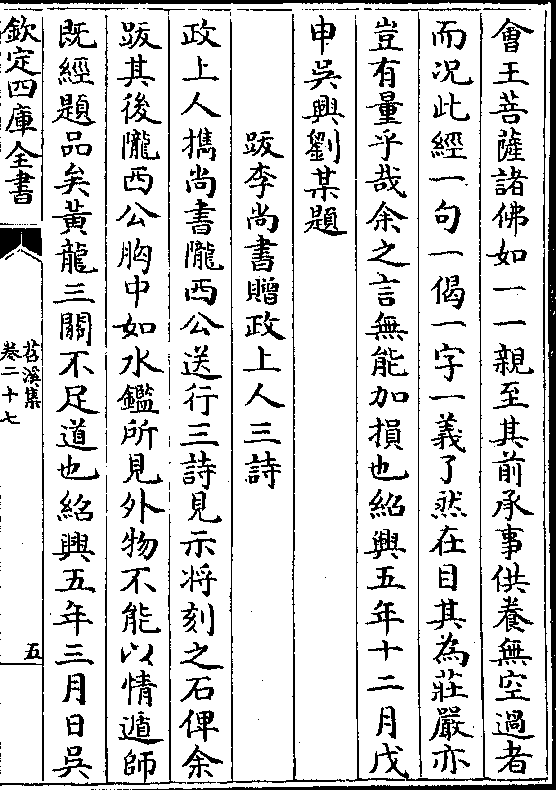 會王菩薩諸佛如一一親至其前承事供養無空過者
而况此經一句一偈一字一義了然在目其為莊嚴亦
豈有量乎哉余之言無能加損也紹興五年十二月戊
申吳興劉某題
跋李尚書贈政上人三詩
政上人攜尚書隴西公送行三詩見示将刻之石俾余
跋其後隴西公胸中如水鑑所見外物不能以情遁師
既經題品矣黃龍三關不足道也紹興五年三月日吳
欽定四庫全書
苕溪集
卷二十七
五